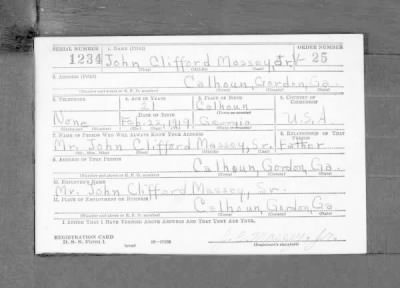 SERIAL NUMBER 1. NAME (Print) ORDER NUMBER
1234 John Clifford Massey, Jr. 25
(First) (Middle) (Last)
2. ADDRESS (Print)
Calhoun, Gordon, Ga.
(Number and street or R. F. D. number) (Town) (County) (State)
3. TELEPHONE 4. AGE IN YEARS 5. PLACE OF BIRTH 6. COUNTRY OF CITIZENSHIP
21 Calhoun
None DATE OF BIRTH (Town or county)
Feb. 22, 1919 Georgia U.S.A.
(Exchange) (Number) (Mo.) (Day) (Yr.) (State or country)
7. NAME OF PERSON WHO WILL ALWAYS KNOW YOUR ADDRESS 8. RELATIONSHIP OF THAT PERSON
Mr. John Clifford Massey, Sr. Father
(Mr., Mrs., Miss) (First) (Middle) (Last)
9. ADDRESS OF THAT PERSON
Calhoun, Gordon, Ga.
(Number and street or R. F. D. number) (Town) (County) (State)
10. EMPLOYER'S NAME
Mr. John Clifford Massey, Sr.
11. PLACE OF EMPLOYMENT OR BUSINESS
Calhoun, Gordon, Ga
(Number and street or R. F. D. number) (Town) (County) (State)
I AFFIRM THAT I HAVE VERIFIED ABOVE ANSWERS AND THAT THEY ARE TRUE.
REGISTRATION CARD
D. S. S. FORM 1 (Registrant's signature)